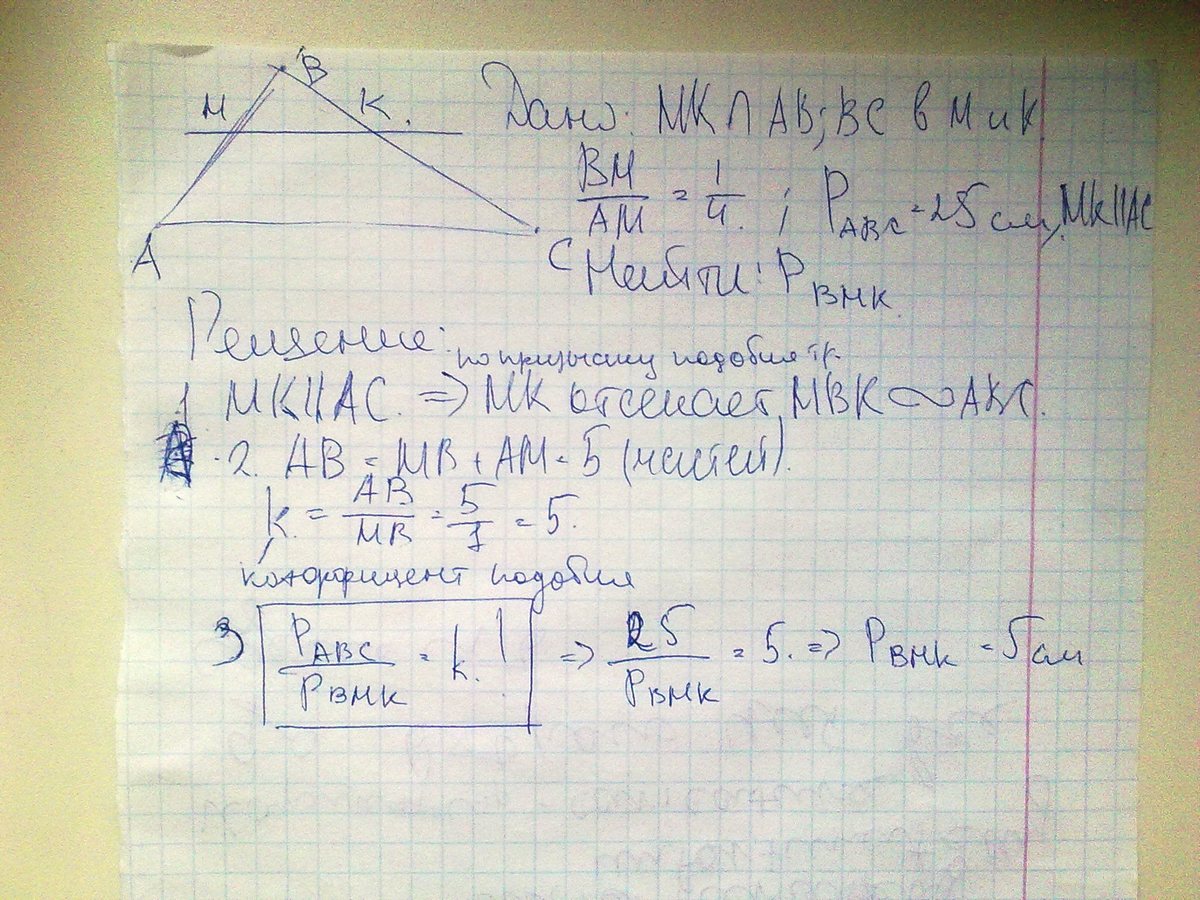 B
M K.
A
C
Дано: MK ∩ AB; BC в M и K
BM/AM = 1/4. ; P_ABC = 25 см, MK || AC
Найти: P_BMK.
Решение:
по признаку подобия тр.
1 MK || AC. => MK отсекает MBK ∾ ABC.
2. AB = MB + AM = 5 (частей).
k. = AB/MB = 5/1 = 5.
коэффициент подобия
3) P_ABC/P_BMK = k.! => 25/P_BMK = 5. => P_BMK = 5 см